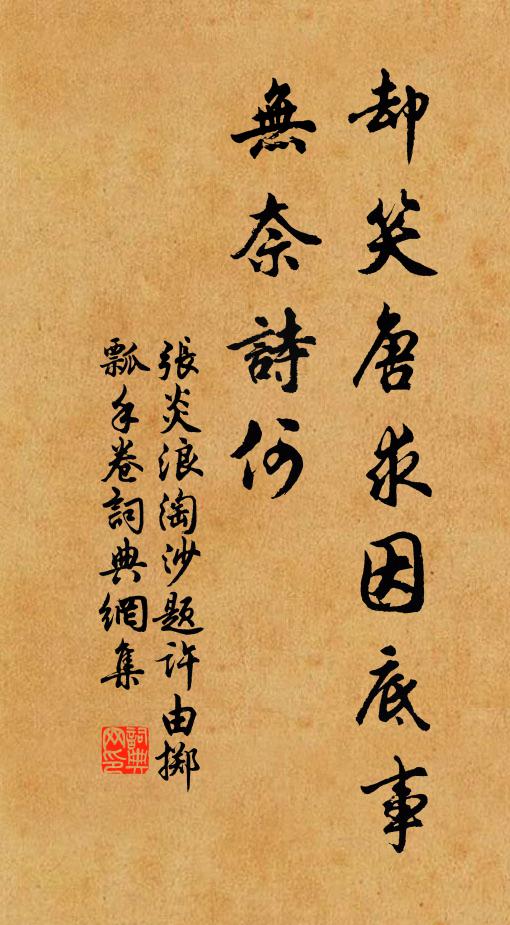 却笑唐求因底事
無奈詩何
張炎浪淘沙題許由擲
瓢手卷詞典網集
詞典
网印